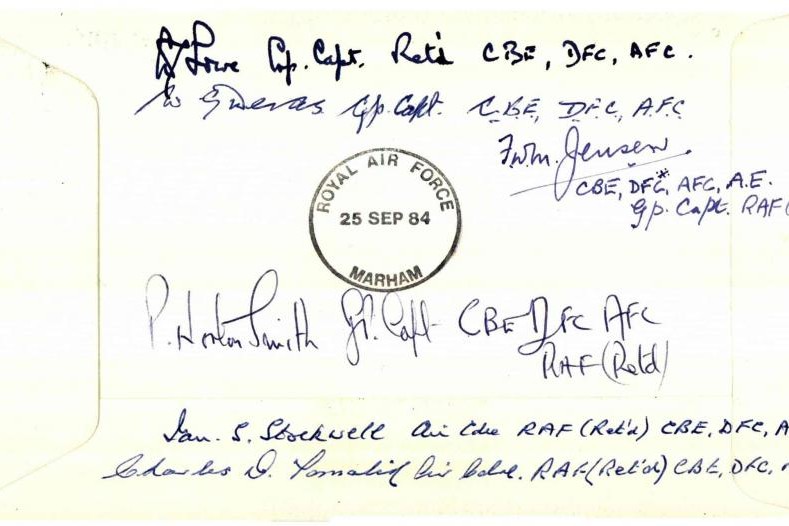 Lowe Gp. Capt. Ret'd CBE, DFC, AFC.
Gp. Capt. C.B.E, D.F.C, A.F.C
F.W.M. Jensen.
CBE, DFC*, AFC, A.E.
Gp. Capt. RAF(
ROYAL AIR FORCE
25 SEP 84
MARHAM
P. Horton Smith Gp. Capt CBE DFC AFC
RAF (Retd)
Ian. S. Stockwell Air Cdre RAF (Ret'd) CBE, DFC, A
Charles D. Air Cdre. RAF (Ret'd) CBE, DFC,